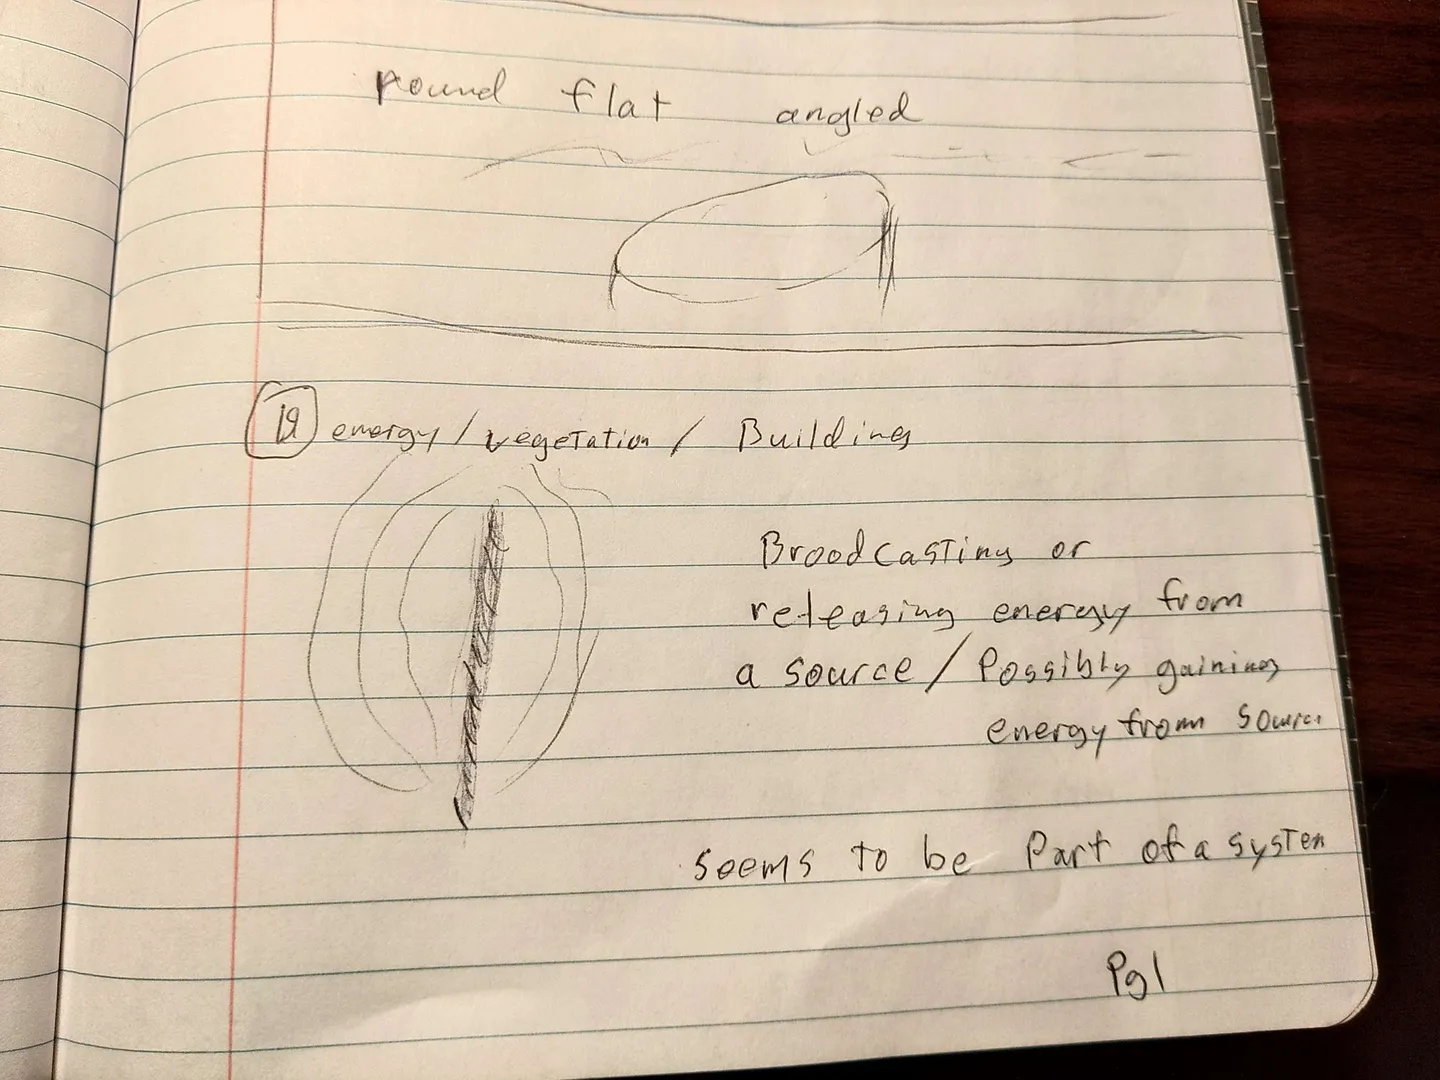 round flat angled
energy/vegetation/ Building
Broodcasting or
releasing energy from
a source/Possibly gaining
energy from source
seems to be Part of a system
Pg1